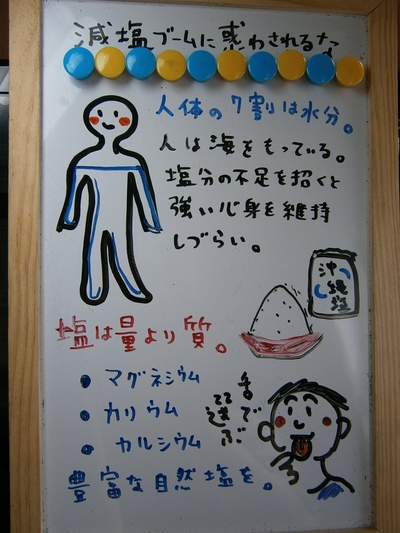 減塩ブームに惑わされるな
人体の7割は水分。
人は海をもっている。
塩分の不足を招くと
強い心身を維持
しづらい。
沖縄塩
塩は量より質。
• マグネシウム
• カリウム
• カルシウム
舌で
選ぶ
豊富な自然塩を。